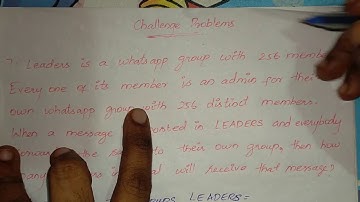 Challenge Problems
7. Leaders is a whatsapp group with 256 member
Every one of its member is an admin for their
own whatsapp group with 256 distinct members.
When a message posted in LEADERS and everybody
to their own group, then how
will receive that message?
LEADERS =